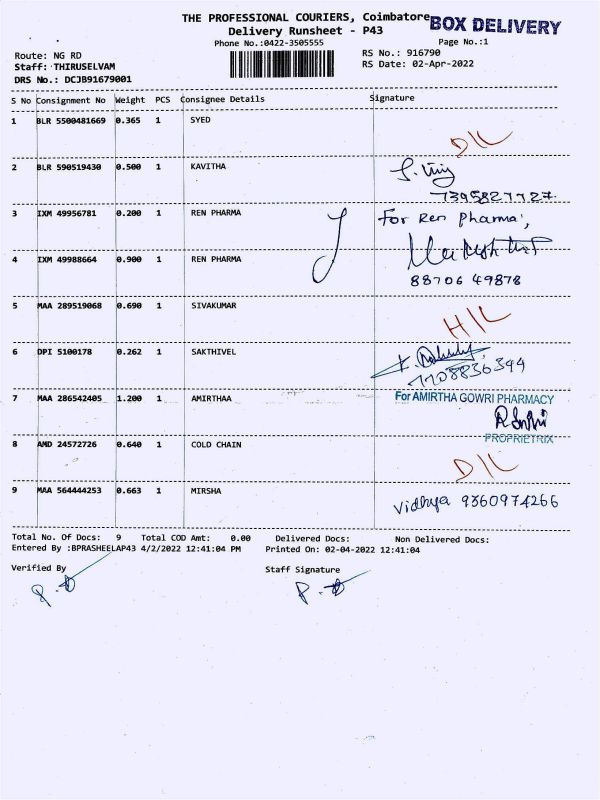 THE PROFESSIONAL COURIERS, Coimbatore
BOX DELIVERY
Delivery Runsheet - P43
Phone No.:0422-3505555
Page No.:1
Route: NG RD
RS No.: 916790
Staff: THIRUSELVAM
RS Date: 02-Apr-2022
DRS No.: DCJB91679001
S No Consignment No Weight PCS Consignee Details Signature
1 BLR 5500481669 0.365 1 SYED D/L
2 BLR 590519430 0.500 1 KAVITHA
7395827727
3 IXM 49956781 0.200 1 REN PHARMA For Ren pharma,
4 IXM 49988664 0.900 1 REN PHARMA
88706 49878
5 MAA 289519068 0.690 1 SIVAKUMAR H/L
6 DPI 5100178 0.262 1 SAKTHIVEL
7708836394
7 MAA 286542405 1.200 1 AMIRTHAA For AMIRTHA GOWRI PHARMACY
PROPRIETRIX
8 AMD 24572726 0.640 1 COLD CHAIN D/L
9 MAA 564444253 0.663 1 MIRSHA Vidhya 9360974266
Total No. Of Docs: 9 Total COD Amt: 0.00 Delivered Docs: Non Delivered Docs:
Entered By :BPRASHEELAP43 4/2/2022 12:41:04 PM Printed On: 02-04-2022 12:41:04
Verified By Staff Signature